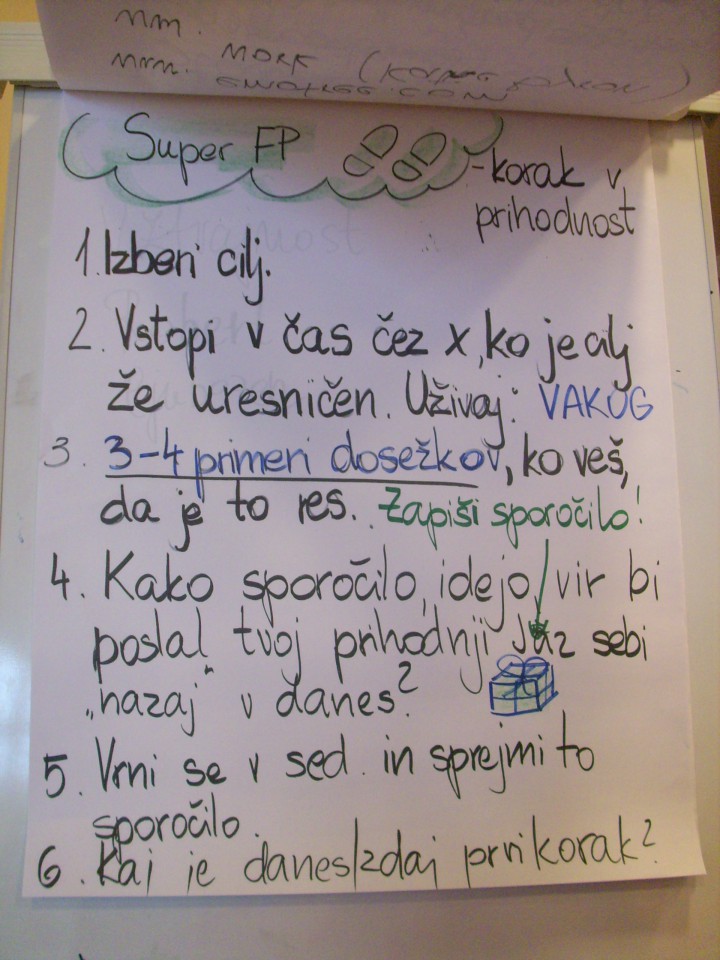 nm.
nm. MORF
Super FP
-korak v
prihodnost
1. Izberi cilj.
2. Vstopi v čas čez x, ko je cilj
že uresničen. Uživaj: VAKOG
3. 3-4 primeri dosežkov, ko veš,
da je to res. Zapiši sporočilo!
4. Kako sporočilo, idejo, vir bi
poslal tvoj prihodnji Jaz sebi
„nazaj" v danes?
5. Vrni se v sed. in sprejmi to
sporočilo.
6. Kaj je danes/zdaj prvi korak?